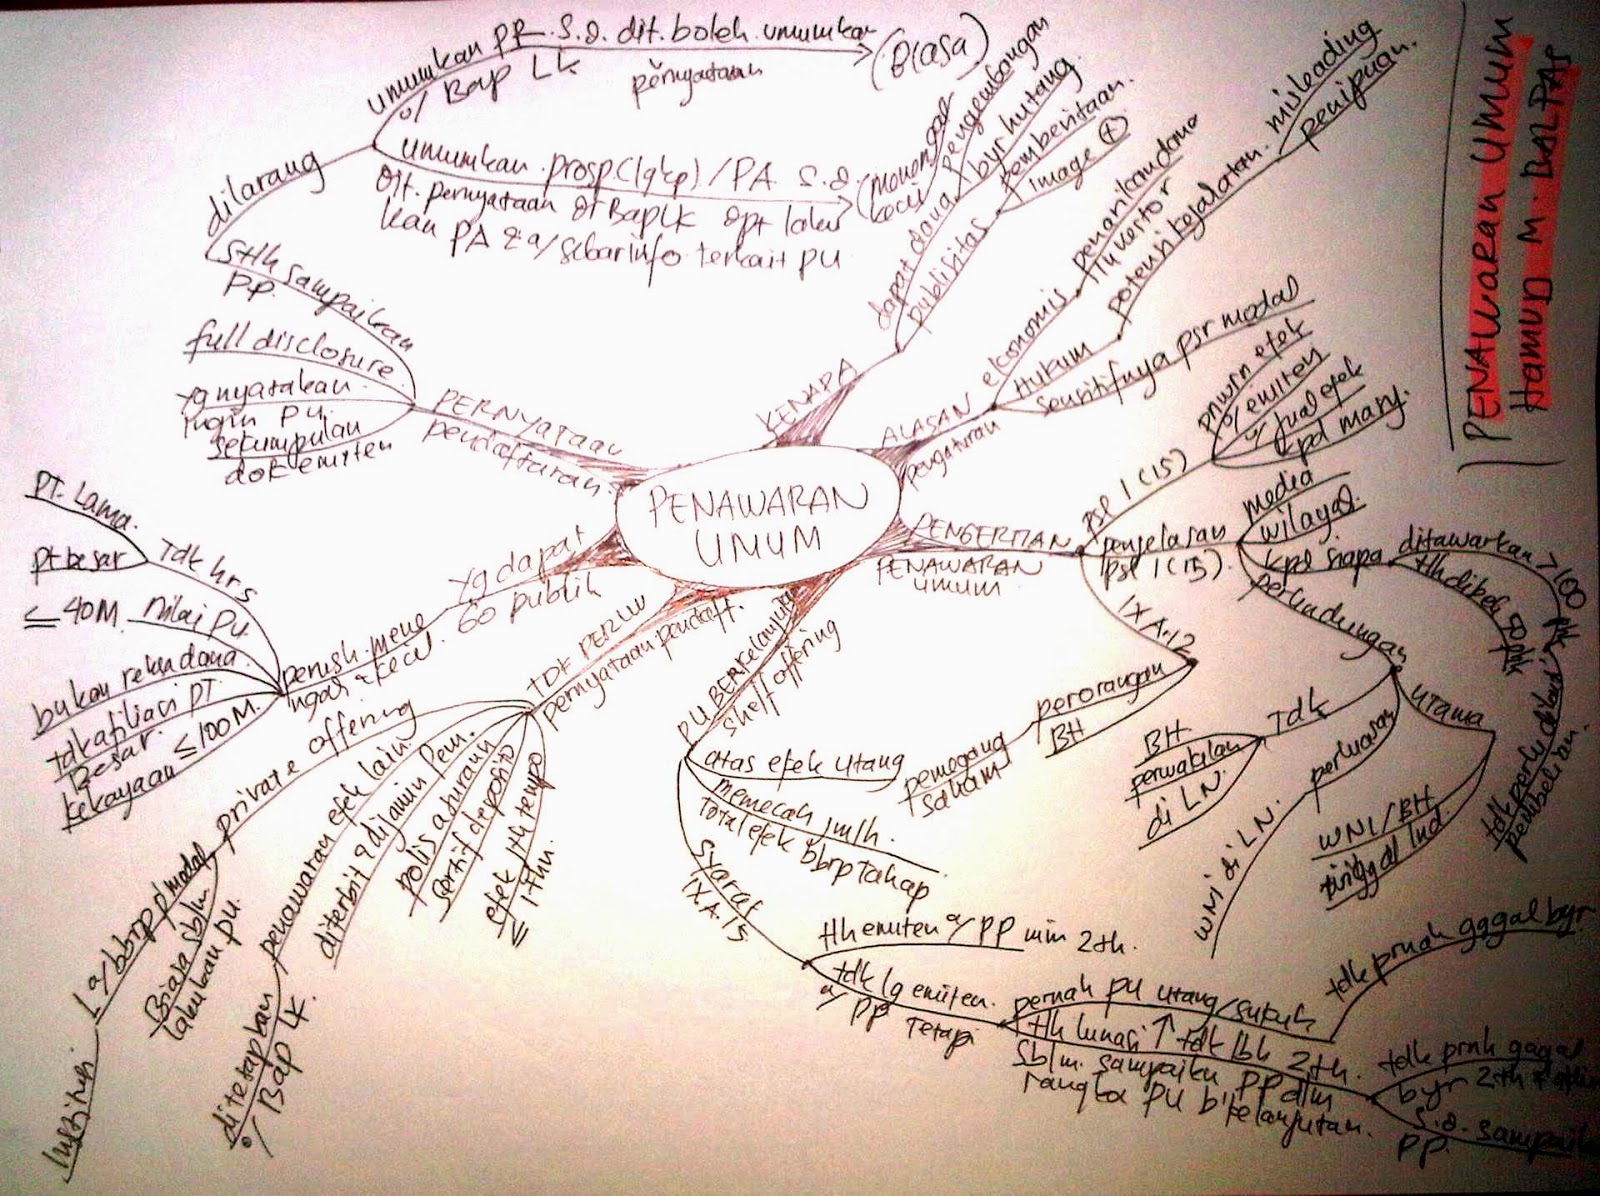 PENAWARAN UMUM
HAMUD M. BALFAS
PENAWARAN
UMUM
KENAPA
dapat dana
pengembangan
byr hutang
publisitas
pemberitaan
image (+)
ALASAN
pengaturan
ekonomis
penarikan dana
investor
Hukum
potensi kejahatan
misleading
penipuan.
sensitifnya psr modal
PENGERTIAN
PENAWARAN
UMUM
psl 1 (15)
pnwrn efek
o/ emiten
u/ jual efek
kpd masy.
penjelasan
psl 1 (15).
media
wilayah
kpd siapa
ditawarkan > 100 phk
tlh dibeli 50 phk
tdk perlu
pembelian
perlindungan
utama
WNI/BH
tinggal Ind.
perluasan
WNI di LN.
Tdk
BH
perwakilan
di LN.
IX.A.12
perorangan
BH
pemegang
saham
PU BERKELANJUTAN
shelf offering
atas efek utang
memecah jmlh.
Total efek bbrp tahap
syarat
IX.A.15
tlh emiten a/ PP min 2 th.
tdk lg emiten.
a/ PP Tetapi
pernah PU utang/sukuk
tdk prnah gagal byr
tlh lunasi ↑ tdk lbh 2 th.
sblm. sampaikn PP dlm
rangka PU b'kelanjutan.
tdk prnh gagal
byr 2 th
s.d. sampaik
PP.
TDK PERLU
pernyataan pendaft.
efek jth tempo
≤ 1 thn.
sertif deposito
polis asuransi
diterbit & dijamin Pem.
penawaran efek lain
ditetapkan
o/ Bap LK.
private offering
1 a/ bbrp pemodal
institusi
Biasa sblm
lakukan PU.
yg dapat
Go publik
perush. mene
ngah & kecil
Tdk hrs
PT. Lama.
PT besar
nilai PU.
≤ 40 M.
bukan reksadana
tdk afiliasi PT.
Besar.
kekayaan ≤ 100 M.
PERNYATAAN
pendaftaran.
full disclosure
yg nyatakan
ingin PU.
sekumpulan
dok emiten
stlh sampaikan
PP.
dilarang
umumkan PR. s.d. dit. boleh umumkan
o/ Bap LK
pernyataan
(BIASA)
umumkan prosp. (lgkp) / PA s.d.
dit. pernyataan dr BapLK dpt laku
kan PA & a/ sebar info terkait PU
(menengah
kecil)